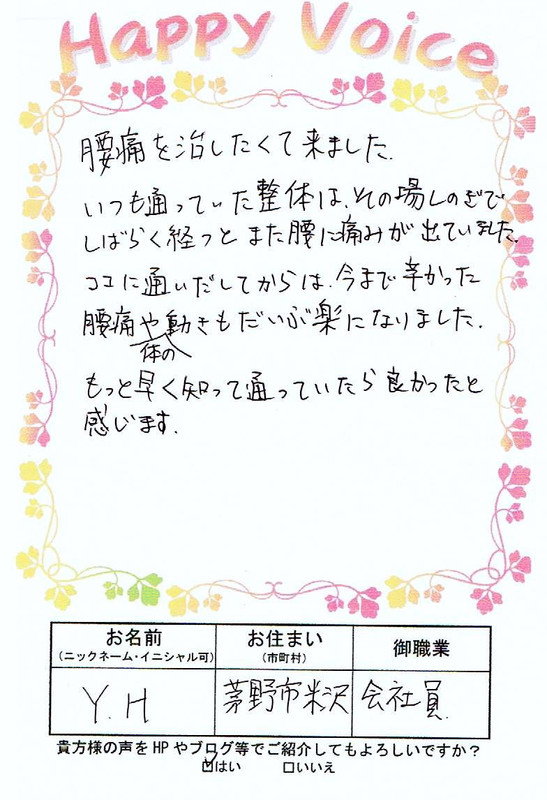 Happy Voice
腰痛を治したくて来ました.
いつも通っていた整体は、その場しのぎで
しばらく経つとまた腰に痛みが出ていました.
ココに通いだしてからは、今まで辛かった
腰痛や体の動きもだいぶ楽になりました.
もっと早く知って通っていたら良かったと
感じます.
お名前
(ニックネーム・イニシャル可)
お住まい
(市町村)
御職業
Y.H
茅野市米沢
会社員.
貴方様の声をHPやブログ等でご紹介してもよろしいですか?
☑はい □いいえ